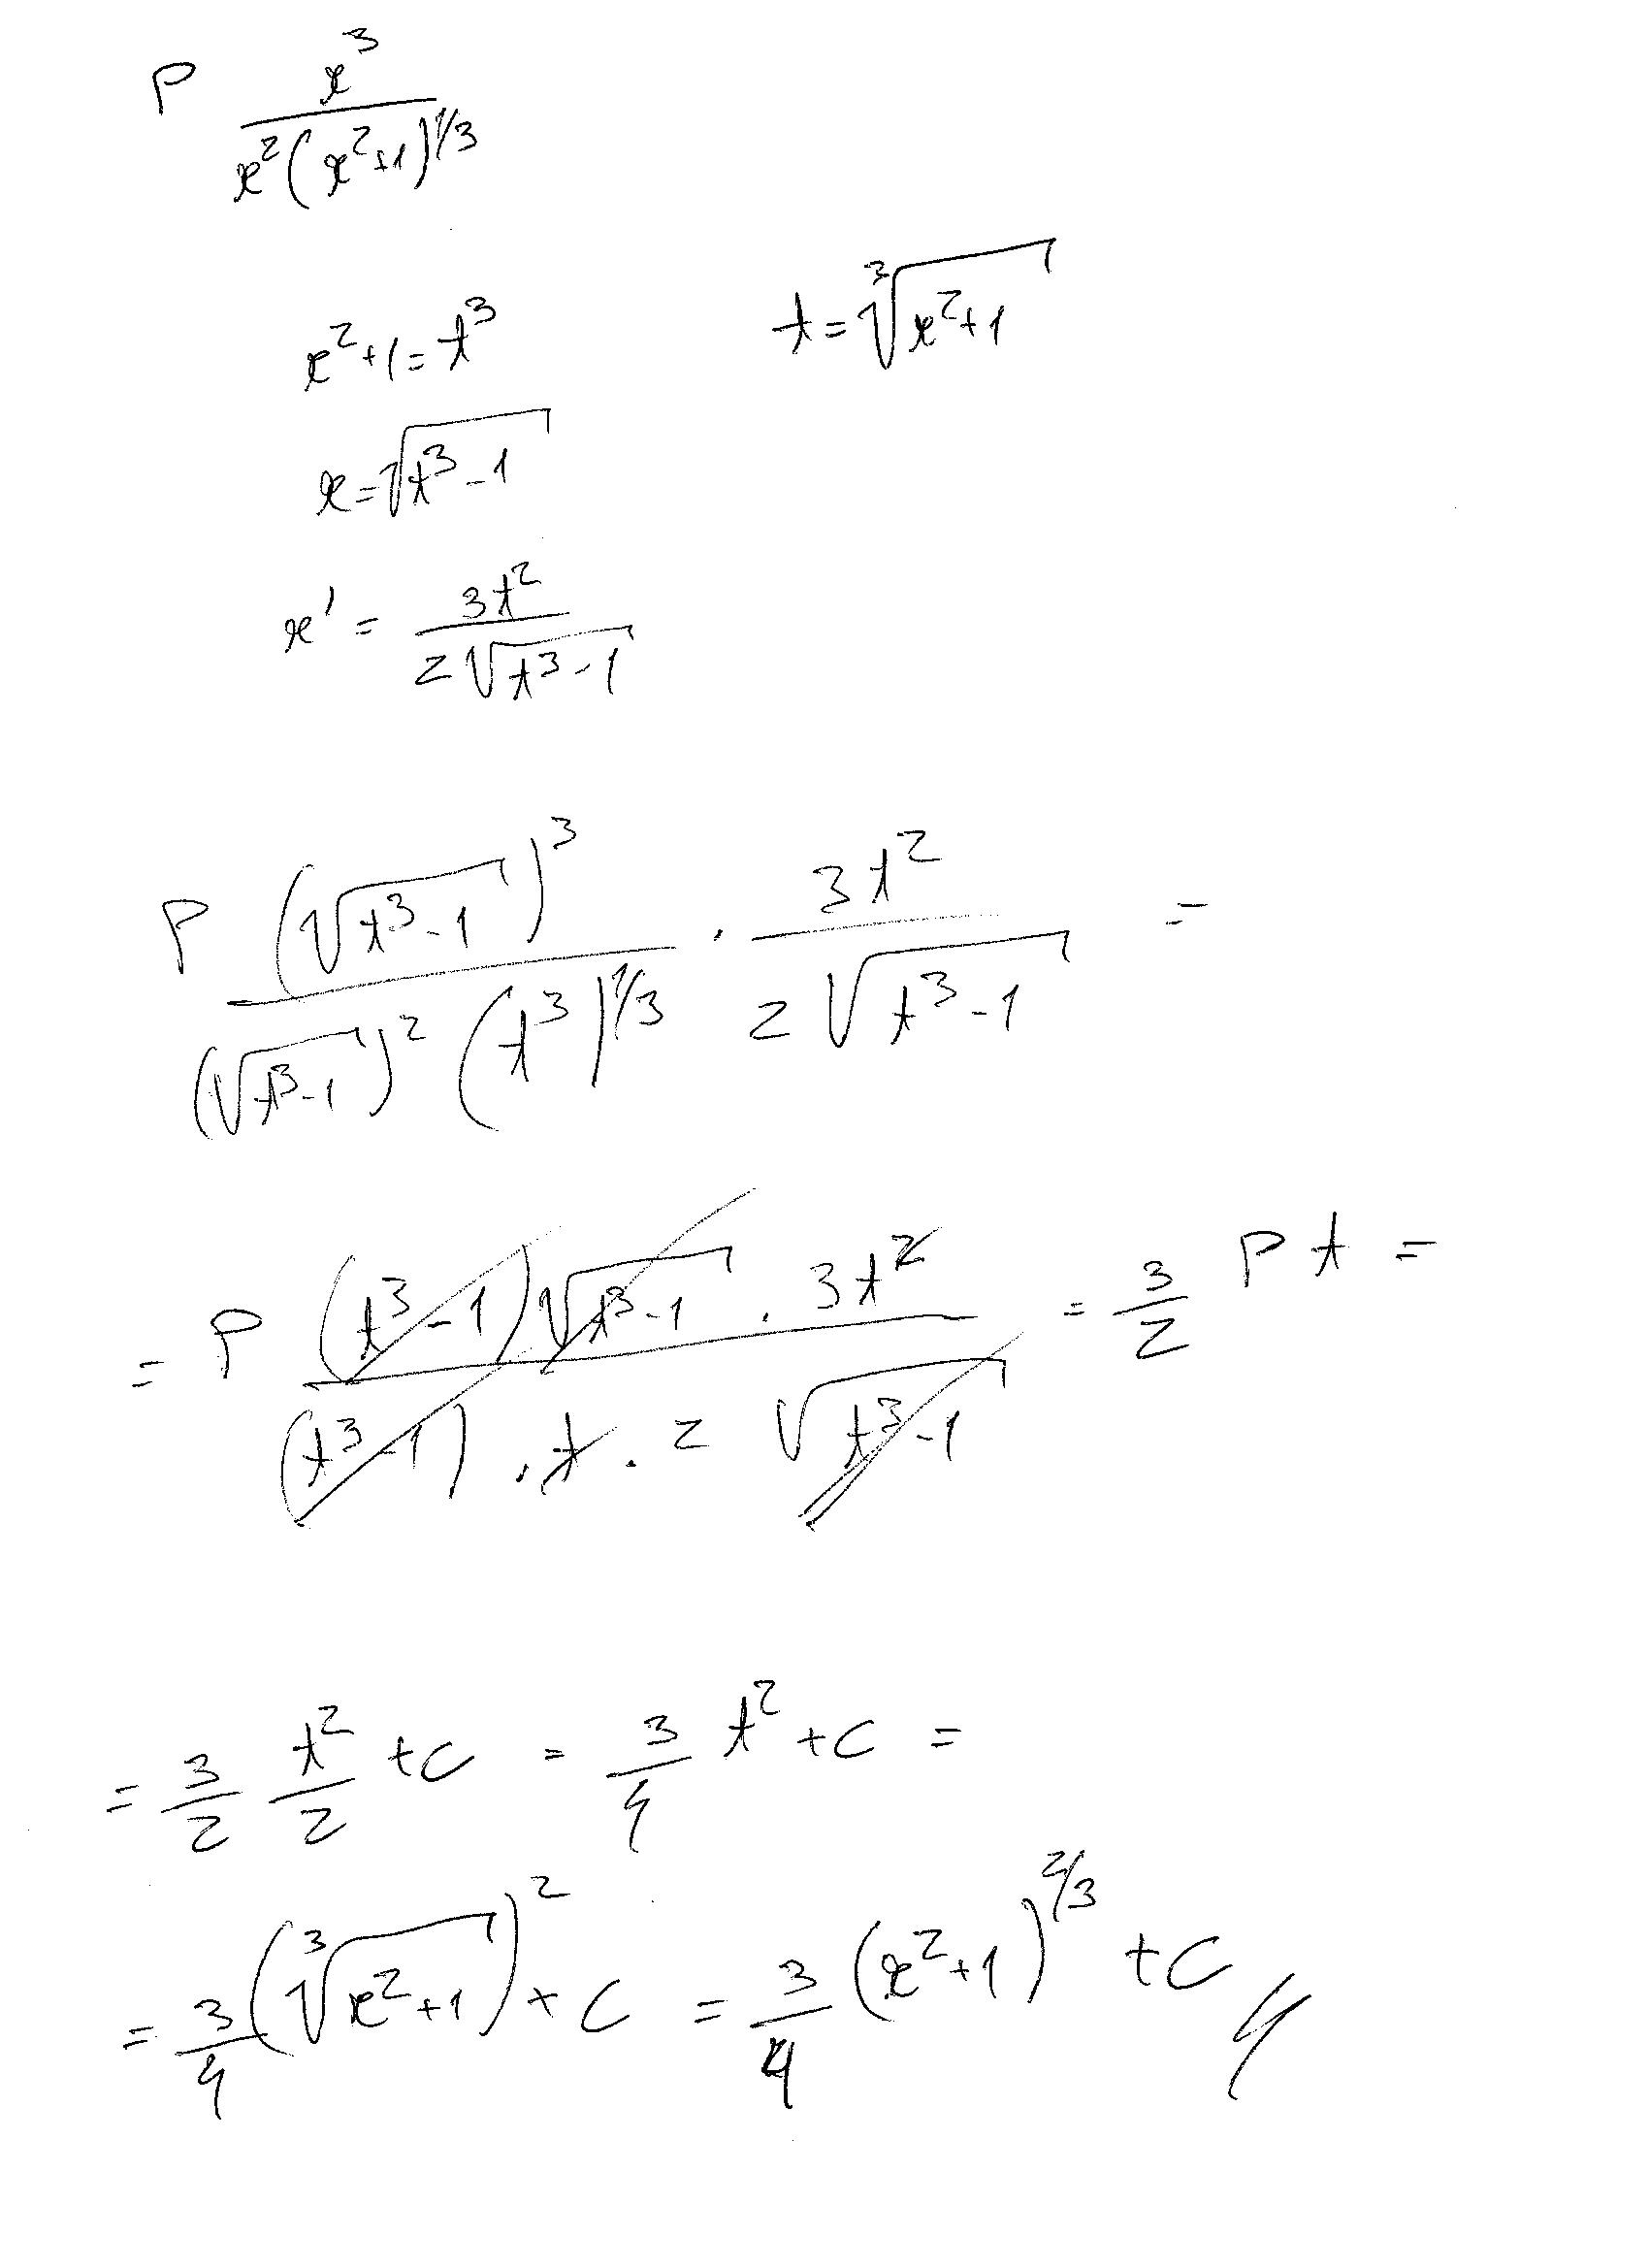 P x^3 / (x^2 (x^2+1)^{1/3})
x^2+1 = t^3    t = ∛(x^2+1)
x = √(t^3-1)
x' = 3t^2 / (2√(t^3-1))
P (√(t^3-1))^3 / ((√(t^3-1))^2 (t^3)^{1/3}) · 3t^2 / (2√(t^3-1)) =
= P (t^3-1)√(t^3-1) · 3t^2 / ((t^3-1) · t · 2 √(t^3-1)) = 3/2 P t =
= 3/2 t^2/2 + C = 3/4 t^2 + C =
= 3/4 (∛(x^2+1))^2 + C = 3/4 (x^2+1)^{2/3} + C //